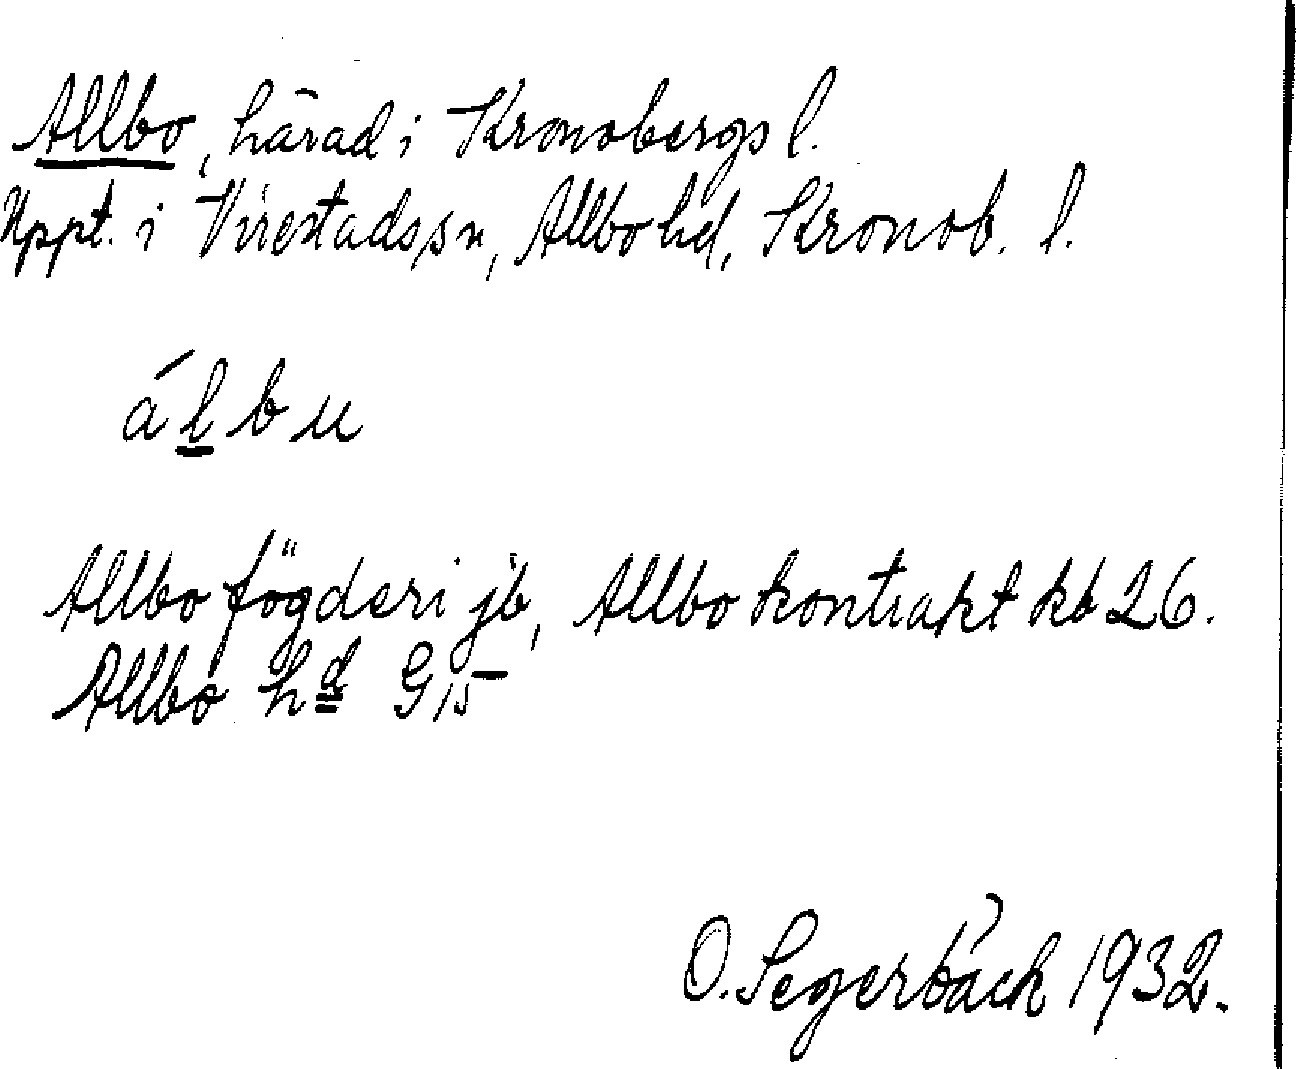 Allbo, härad i Kronobergs l.
Uppt. i Virestads sn, Allbo hd, Kronob. l.
álbu
Allbo fögderi jb, Allbo kontrakt kb 26.
Allbo hd G 15
O. Segerbäck 1932.